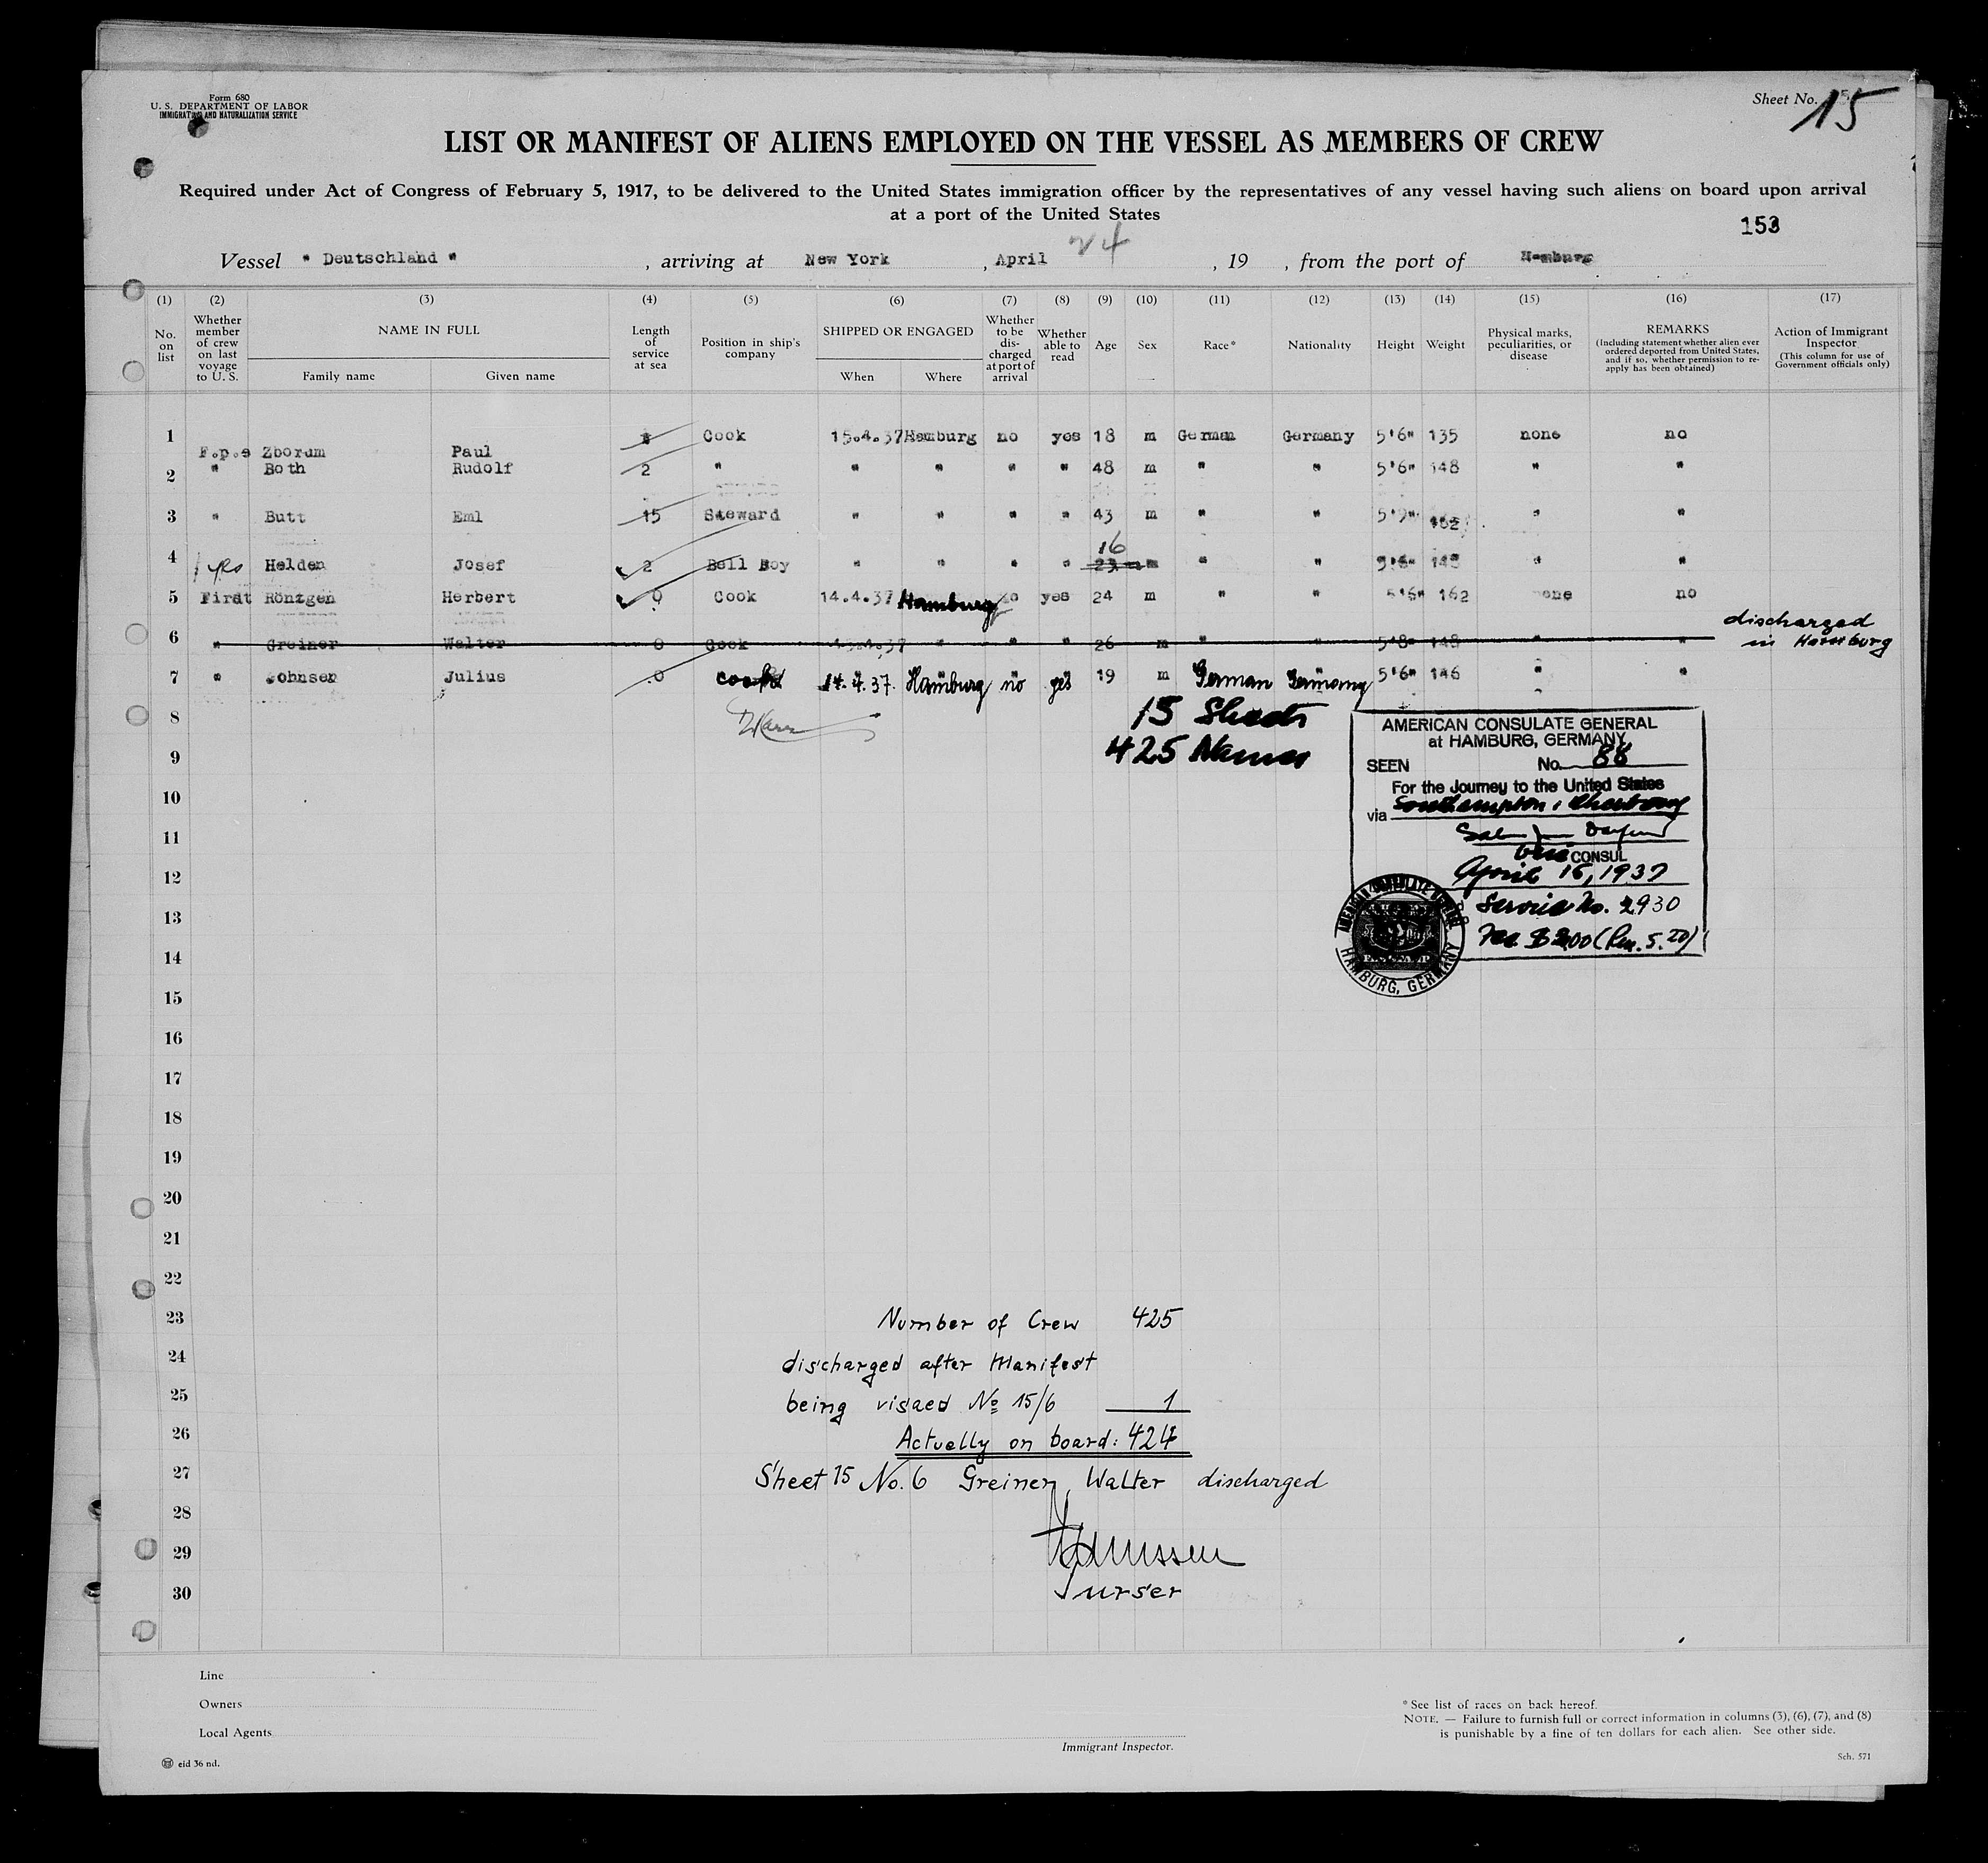 Form 680
U. S. DEPARTMENT OF LABOR
IMMIGRATION AND NATURALIZATION SERVICE
Sheet No. 15
LIST OR MANIFEST OF ALIENS EMPLOYED ON THE VESSEL AS MEMBERS OF CREW
Required under Act of Congress of February 5, 1917, to be delivered to the United States immigration officer by the representatives of any vessel having such aliens on board upon arrival
at a port of the United States
153
Vessel " Deutschland " , arriving at New York , April 24 , 19 , from the port of Hamburg
(1) (2) (3) (4) (5) (6) (7) (8) (9) (10) (11) (12) (13) (14) (15) (16) (17)
No. on list
Whether member of crew on last voyage to U. S.
NAME IN FULL
Family name Given name
Length of service at sea
Position in ship's company
SHIPPED OR ENGAGED
When Where
Whether to be discharged at port of arrival
Whether able to read
Age
Sex
Race*
Nationality
Height
Weight
Physical marks, peculiarities, or disease
REMARKS
(Including statement whether alien ever ordered deported from United States, and if so, whether permission to re-apply has been obtained)
Action of Immigrant Inspector
(This column for use of Government officials only)
1 F.p.s Zborum Paul Cook 15.4.37 Hamburg no yes 18 m German Germany 5'6" 135 none no
2 " Both Rudolf 2 " " " " " 48 m " " 5'6" 148 " "
3 " Butt Eml 15 Steward " " " " 43 m " " 5'9" 162 " "
4 yes Helden Josef 2 Bell Boy " " " " 16 23 m " " 5'6" 148 " "
5 First Röntgen Herbert 0 Cook 14.4.37 Hamburg no yes 24 m " " 5'6" 162 none no
6 " Greiner Walter 0 Cook 15.4.37 " " " 26 m " " 5'8" 148 " " discharged in Hamburg
7 " Johnsen Julius 0 cook 14.4.37. Hamburg no yes 19 m German Germany 5'6" 146 " "
8
15 Sheets
9
425 Names
10
11
12
13
14
15
16
17
18
19
20
21
22
AMERICAN CONSULATE GENERAL
at HAMBURG, GERMANY
SEEN No. 88
For the Journey to the United States
via Southampton, Cherbourg
Vice CONSUL
April 16, 1937
Service No. 2930
Fee $2.00 (Rm. 5.20)
AMERICAN CONSULATE GENERAL
HAMBURG, GERMANY
23 Number of Crew 425
24 discharged after Manifest
25 being visaed No 15/6 1
26 Actually on board: 424
27 Sheet 15 No. 6 Greiner, Walter discharged
28
29
30 Purser
Line
Owners
Local Agents
Immigrant Inspector.
* See list of races on back hereof.
NOTE. — Failure to furnish full or correct information in columns (3), (6), (7), and (8)
is punishable by a fine of ten dollars for each alien. See other side.
eid 36 nd.
Sch. 571